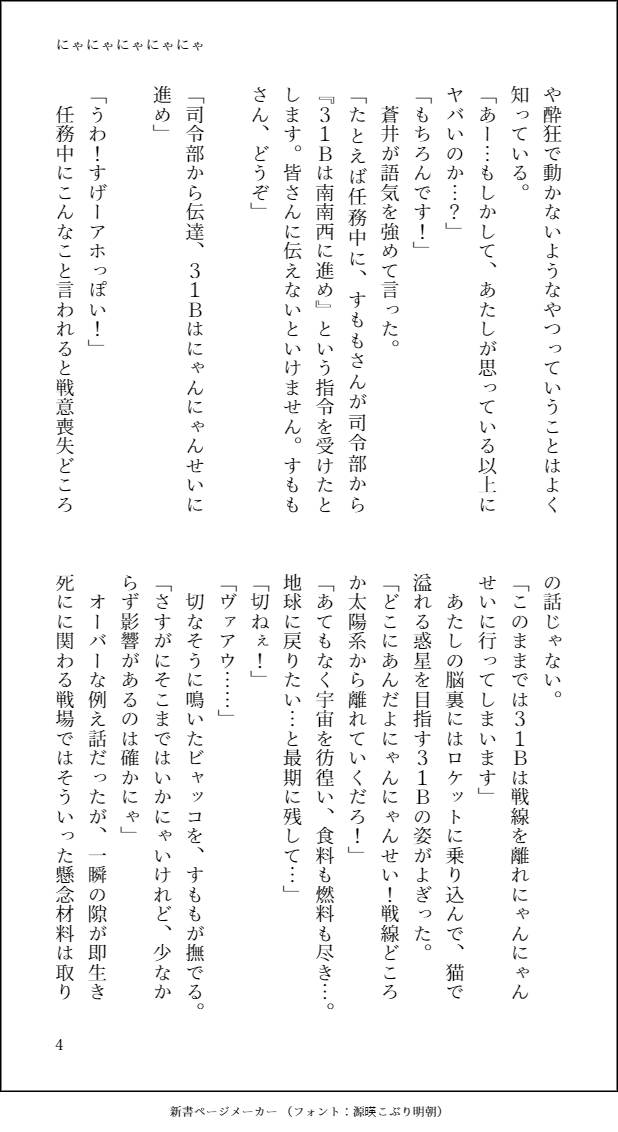 にゃにゃにゃにゃにゃ
や酔狂で動かないようなやつっていうことはよく
知っている。
「あー…もしかして、あたしが思っている以上に
ヤバいのか…？」
「もちろんです！」
　蒼井が語気を強めて言った。
「たとえば任務中に、すももさんが司令部から
『３１Ｂは南南西に進め』という指令を受けたと
します。皆さんに伝えないといけません。すもも
さん、どうぞ」
「司令部から伝達、３１Ｂはにゃんにゃんせいに
進め」
「うわ！すげーアホっぽい！」
　任務中にこんなこと言われると戦意喪失どころ
の話じゃない。
「このままでは３１Ｂは戦線を離れにゃんにゃん
せいに行ってしまいます」
　あたしの脳裏にはロケットに乗り込んで、猫で
溢れる惑星を目指す３１Ｂの姿がよぎった。
「どこにあんだよにゃんにゃんせい！戦線どころ
か太陽系から離れていくだろ！」
「あてもなく宇宙を彷徨い、食料も燃料も尽き…。
地球に戻りたい…と最期に残して…」
「切ねぇ！」
「ヴァアウ……」
　切なそうに鳴いたビャッコを、すももが撫でる。
「さすがにそこまではいかにゃいけれど、少なか
らず影響があるのは確かにゃ」
　オーバーな例え話だったが、一瞬の隙が即生き
死にに関わる戦場ではそういった懸念材料は取り
4
新書ページメーカー（フォント：源暎こぶり明朝）